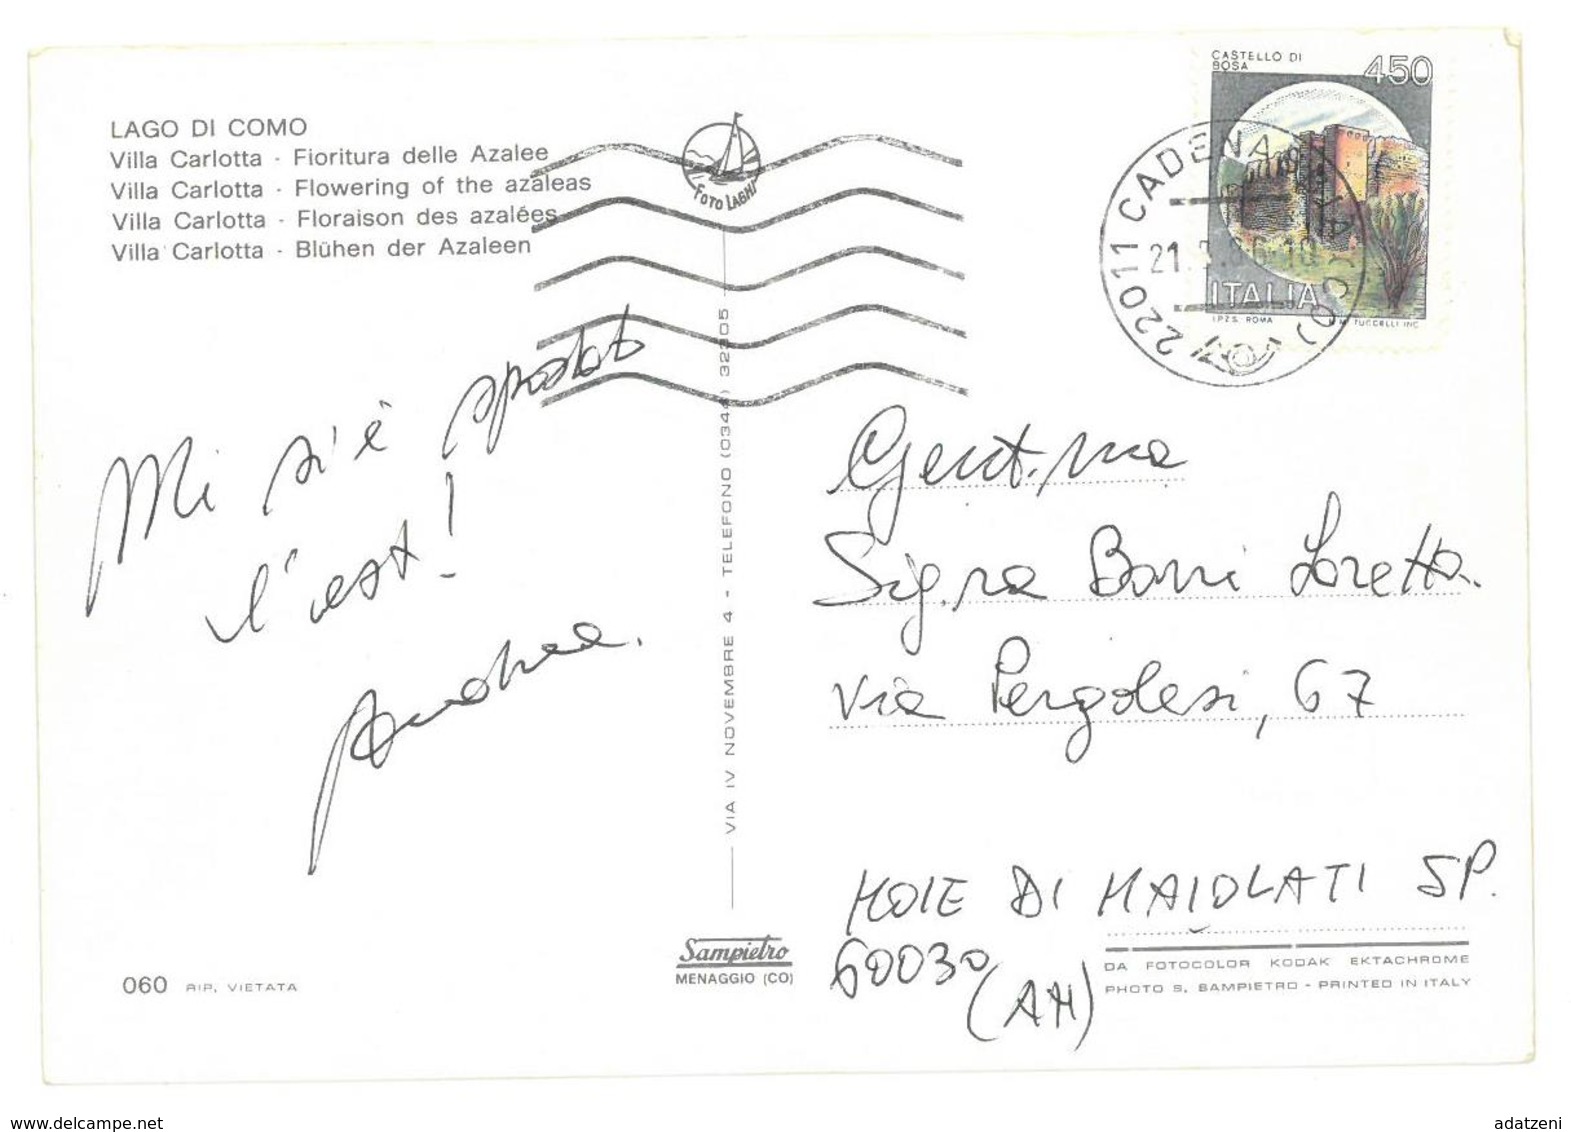 LAGO DI COMO
Villa Carlotta - Fioritura delle Azalee
Villa Carlotta - Flowering of the azaleas
Villa Carlotta - Floraison des azalées
Villa Carlotta - Blühen der Azaleen
FOTO LAGHI
CASTELLO DI
BOSA
450
ITALIA
I.P.Z.S. ROMA
TUCCELLI INC.
22011 CADENABBIA (CO)
21
Mi si è
l'est!
Andrea.
VIA IV NOVEMBRE 4 - TELEFONO (0344) 32305
Gent.ma
Sig.ra Borri Loretta
Via Pergolesi, 67
MOIE DI MAIOLATI SP.
60030
(AN)
Sampietro
MENAGGIO (CO)
060 RIP. VIETATA
DA FOTOCOLOR KODAK EKTACHROME
PHOTO S. SAMPIETRO - PRINTED IN ITALY
www.delcampe.net
adatzeni